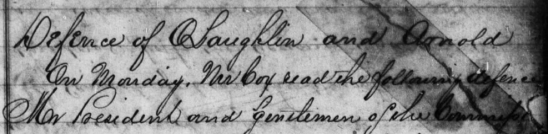 Defence of O'Laughlin and Arnold
On Monday, Mr Cox read the following defence
Mr President and Gentlemen of the Commiss